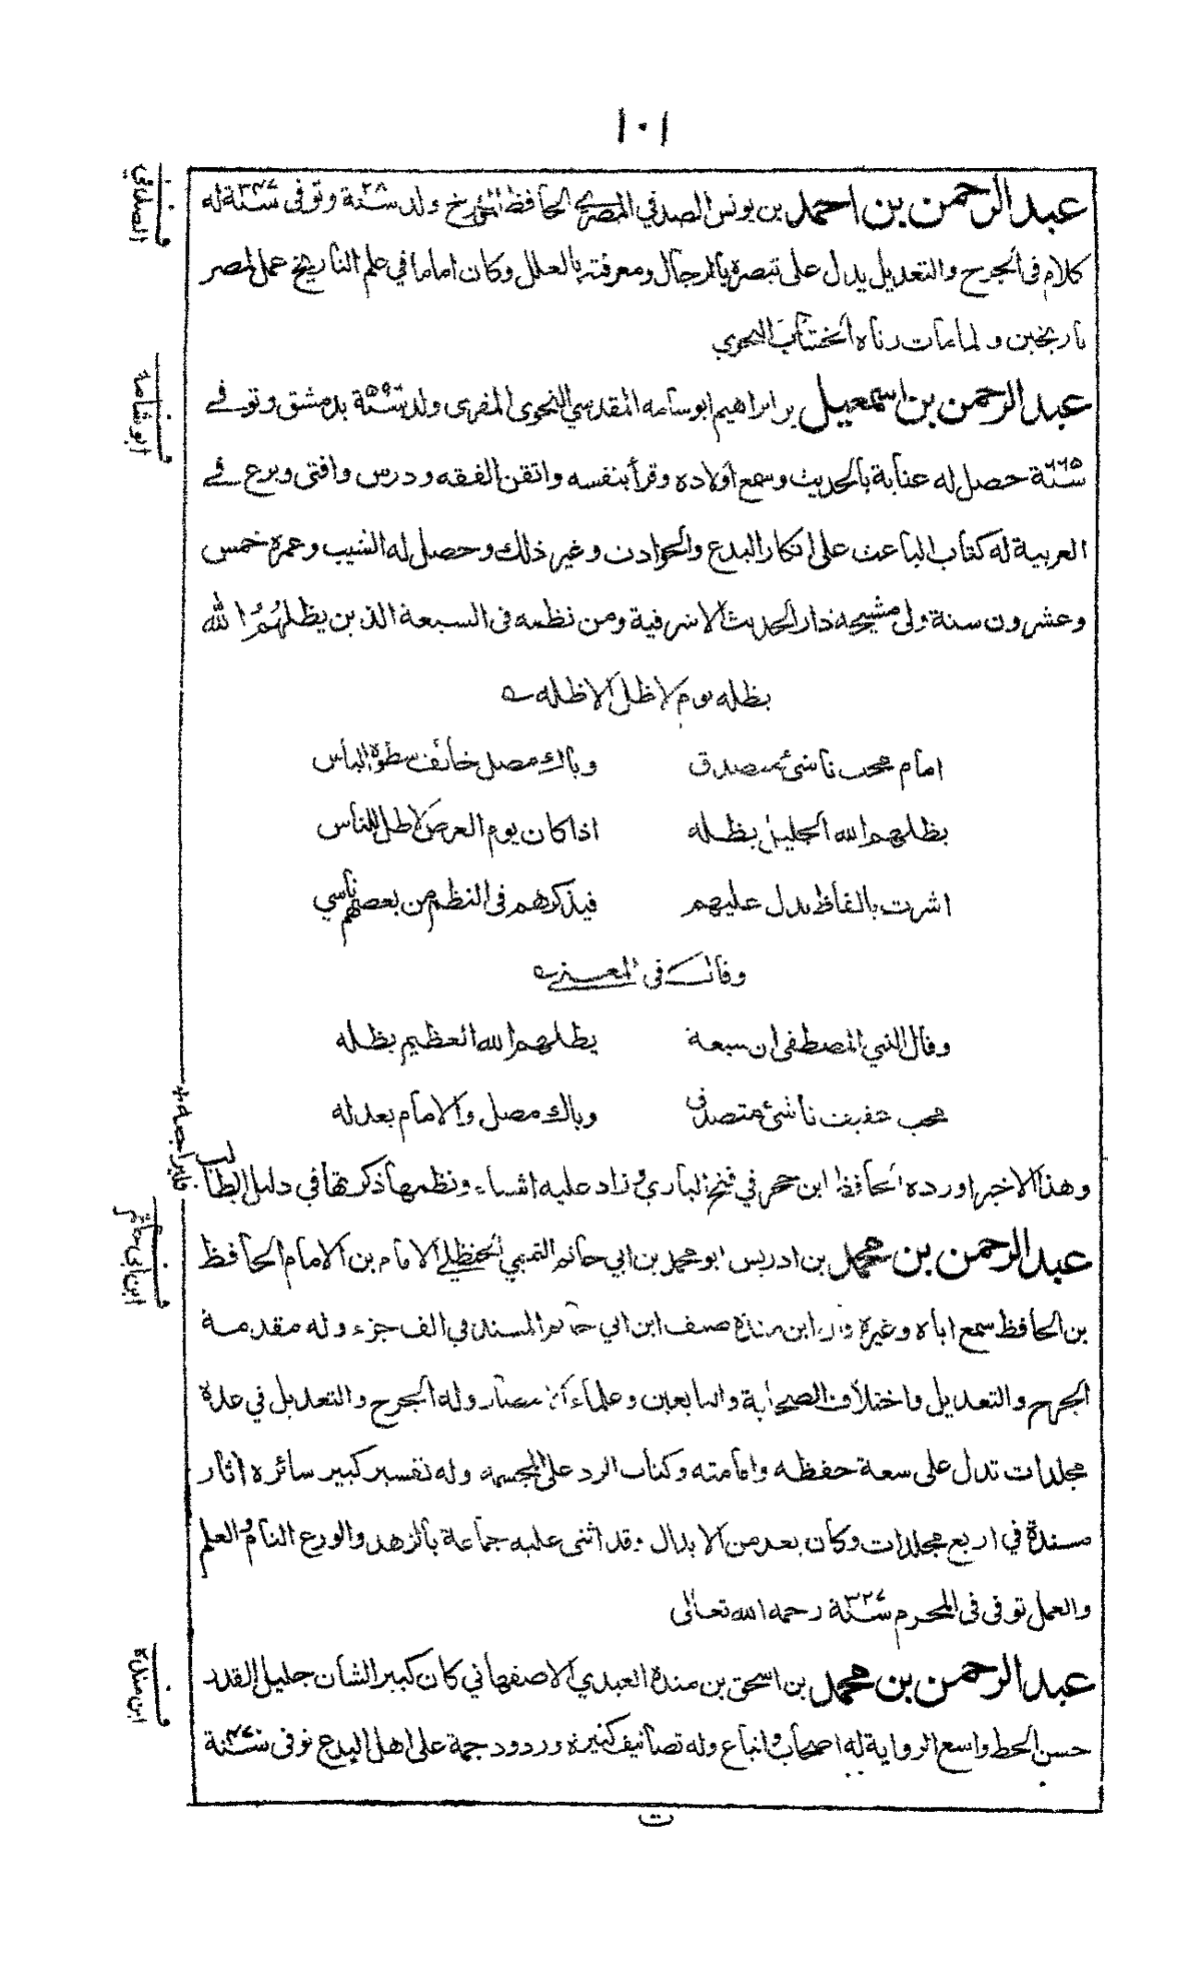 ١٠١
عبد الرحمن بن احمد بن يونس الصدفي المصري الحافظ المؤرخ ولد سنة ٢٨١ وتوفى سنة ٣٤٧ له
كلام فى الجرح والتعديل يدل على تبصره بالرجال ومعرفته بالعلل وكان اماما في علم التأريخ عمل لمصر
تاريخين ولما مات رثاه الخشاب النحوي
عبد الرحمن بن اسمعيل بن ابراهيم ابو شامه المقدسي النحوى المقرى ولد سنة ٥٩٩ بدمشق وتوفى
سنة ٦٦٥ حصل له عناية بالحديث وسمع اولاده وقرأ بنفسه واتقن الفقه ودرس وافتى وبرع فى
العربية له كتاب الباعث على انكار البدع والحوادث وغير ذلك وحصل له الشيب وعمره خمس
وعشرون سنة ولى مشيخه دار الحديث الاشرفية ومن نظمه فى السبعة الذين يظلهُمُ الله
بظله يوم لا ظل الا ظله
امام محب ناشئ متصدق
وباك مصل خائف سطوة الباس
يظلهم الله الجليل بظله
اذا كان يوم العرض لا ظل للناس
اشرت بالفاظ تدل عليهم
فيذكرهم فى النظم من بعضهم ناسي
وقال فى المعنى
وقال النبي المصطفى ان سبعة
يظلهم الله العظيم بظله
محب عفيف ناشئ متصدق
وباك مصل والامام بعدله
وهذا الاخير اورده الحافظ ابن حجر في فتح الباري وزاد عليه اشياء ونظمها ذكرتها في دليل الطالب
فليراجعه
عبد الرحمن بن محمد بن ادريس ابو محمد بن ابي حاتم التميمي الحنظلي الامام بن الامام الحافظ
بن الحافظ سمع اباه وغيره قال ابن منده صنف ابن ابي حاتم المسند في الف جزء وله مقدمة
الجرح والتعديل واختلاف الصحابة والتابعين وعلماء الامصار وله الجرح والتعديل في عدة
مجلدات تدل على سعة حفظه وامامته وكتاب الرد على المجسمه وله تفسير كبير سائره اثار
مسندة في اربع مجلدات وكان يعد من الابدال وقد اثنى عليه جماعة بالزهد والورع التام والعلم
والعمل توفى فى المحرم سنة ٣٢٧ رحمه الله تعالى
عبد الرحمن بن محمد بن اسحق بن مندة العبدي الاصفهاني كان كبير الشأن جليل القدر
حسن الخط واسع الرواية له اصحاب واتباع وله تصانيف كثيرة وردود جمة على اهل البدع توفى سنة
الصدفي
ابو شامه
ابن ابى حاتم
ابن منده
ت